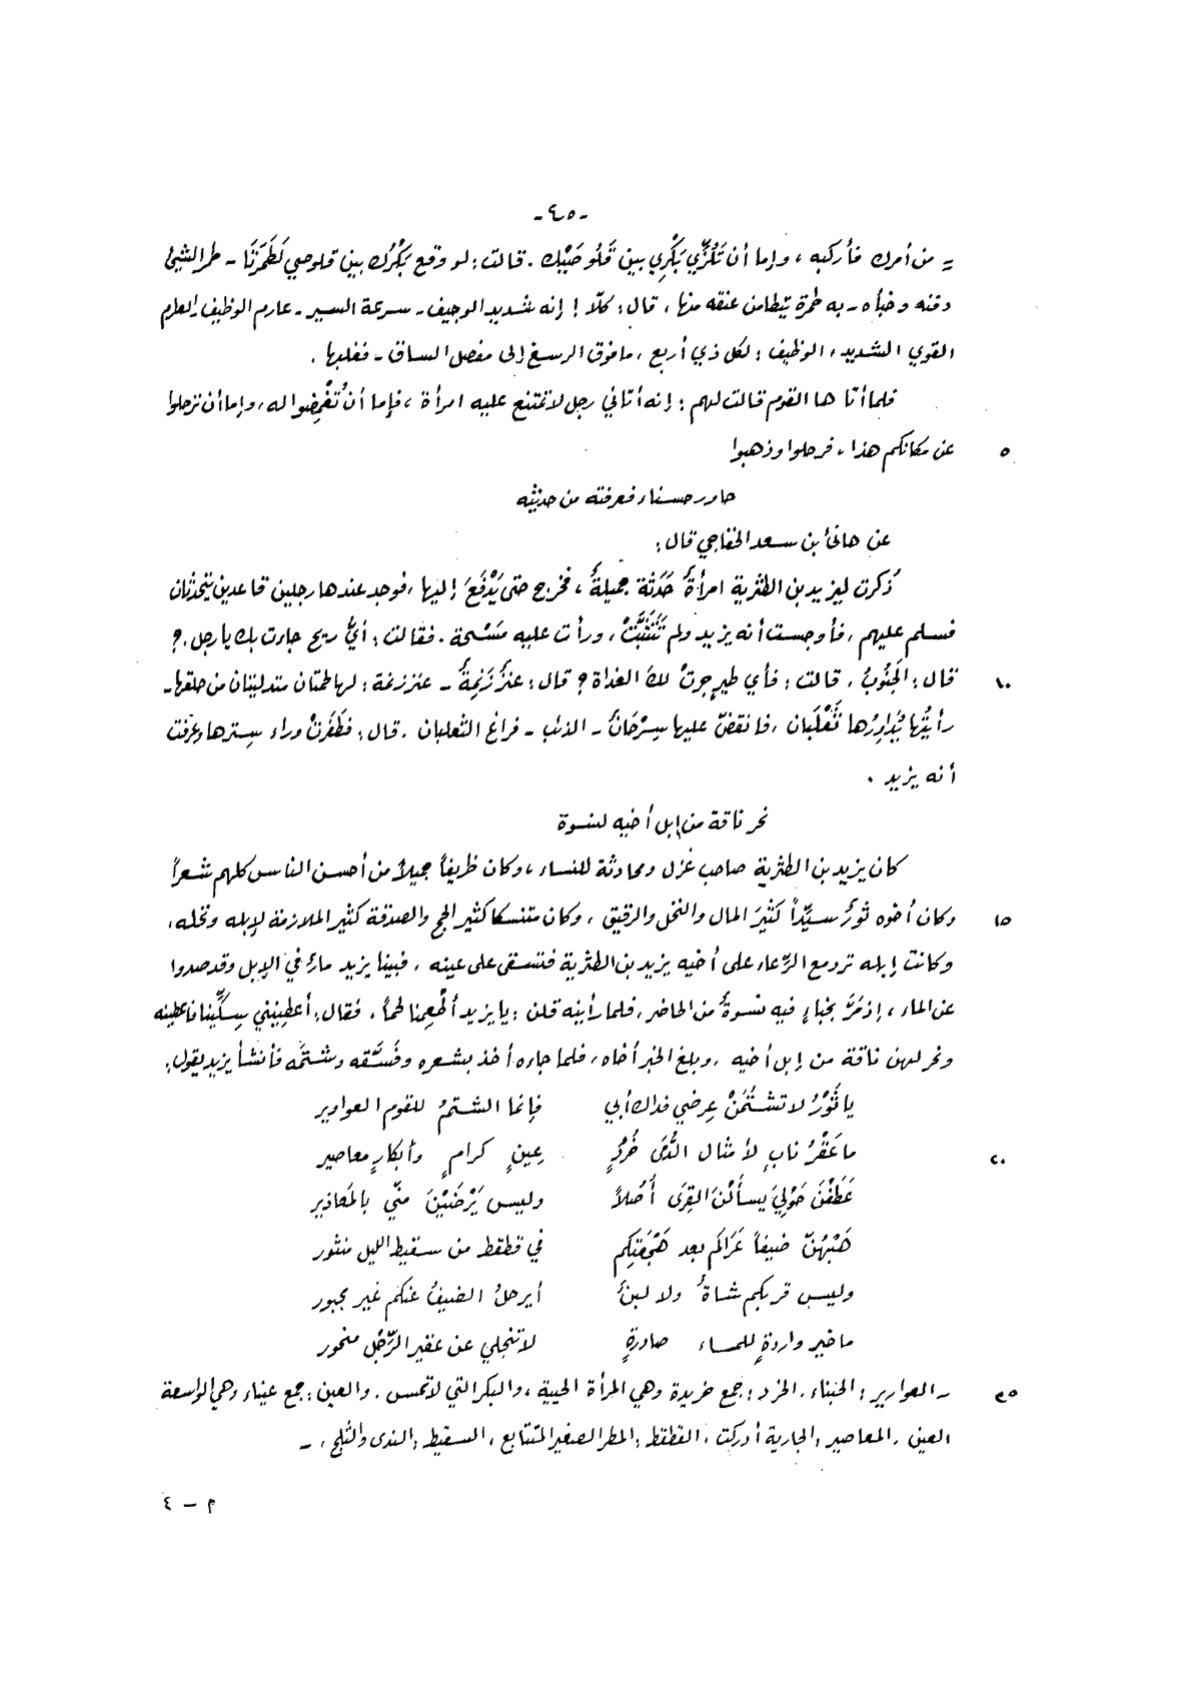 -٤٥-
= من أمرك فأركبه ، وإما أن تَلُزِّي بَكْرِي بين قَلُوصَيْك . قالت : لو وقع بَكْرُك بين قلوصي لَطَمَرَتَا - طمر الشيئ
دفنه وخبأه - به طمرة يتطامن عنقه منها ، قال : كلّا ! إنه شديد الوجيف - سرعة السير - عارم الوظيف - العارم
القوي الشديد ، الوظيف : لكل ذي أربع ، ما فوق الرسغ إلى مفصل الساق - فغلبها .
فلما أتاها القوم قالت لهم : إنه أتاني رجل لا تمتنع عليه امرأة ، فإما أن تُغْمِضوا له ، وإما أن ترحلوا
عن مكانكم هذا ، فرحلوا وذهبوا
٥
حاور حسناء فعرفته من حديثه
عن هانئ بن سعد الخفاجي قال :
ذُكرت ليزيد بن الطثرية امرأةٌ حَدَثة جميلةٌ ، فخرج حتى يَدْفَعَ إليها ، فوجد عندها رجلين قاعدين يتحدثان
فسلم عليهم ، فأوجست أنه يزيد ولم تَتَثَبَّتْ ، ورأت عليه مَسْحة . فقالت : أيُّ ريح جاءت بك يا رجل . ؟
قال : الجَنُوبُ . قالت : فأي طيرٍ جرتْ لك الغداة ؟ قال : عنزٌ زَنِمةٌ - عنز زنمة : لها طمتان متدليتان من حلقها -
١٠
رأيتُها يُدَاوِرُها ثَعْلَبان ، فانقضّ عليها سِرْحَانٌ - الذئب - فراغ الثعلبان . قال : فطَفَرَتْ وراء سِترها وعرفت
أنه يزيد .
نحر ناقة من إبل أخيه لنسوة
كان يزيد بن الطثرية صاحب غزل ومحادثة للنساء ، وكان ظريفاً جميلاً من أحسن الناس كلهم شعراً
وكان أخوه ثورٌ سيّداً كثيرَ المال والنخل والرقيق ، وكان متنسكا كثير الحج والصدقة كثير الملازمة لإبله ونخله ،
١٥
وكانت إبله ترد مع الرِّعاء على أخيه يزيد بن الطثرية فتسقى على عينه ، فبينا يزيد مارٌ في الإبل وقد صدروا
عن الماء ، إذ مَرَّ بخباءٍ فيه نسوةٌ من الحاضر ، فلما رأينه قلن : يا يزيد أطعمنا لحماً ، فقال : أعطِينني سِكِّينا فأعطينه
ونحر لهن ناقة من إبل أخيه ، وبلغ الخبر أخاه ، فلما جاءه أخذ بشعره وفَسَّقه وشتَمه فأنشأ يزيد يقول :
يا ثَوْرُ لا تشتُمَنْ عِرضي فداك أبي      فإنما الشتمُ للقوم العواوير
ما عَقْرُ نابٍ لأمثال الدُّمَى خُرُدٍ      عِينٍ كرامٍ وأبكارٍ معاصير
٢٠
عَطَفْنَ حَوْلِيَ يسألْنَ القِرَى أُصُلاً      وليس يَرْضَيْنَ منّي بالمعاذير
هَبْهُنّ ضيفاً عَراكم بعد هَجْعَتِكم      في قطقط من سقيط الليل منثور
وليس قربكم شاةٌ ولا لبنٌ      أيرحلُ الضيفُ عنكم غير مجبور
ما خير واردةٍ للماء صادرةٍ      لا تنجلي عن عقير الرِّجْل منحور
- العوارير : الجبناء . الخرد : جمع خريدة وهي المرأة الحيية ، والبكر التي لا تمسس . والعين : جمع عيناء وهي الواسعة
٢٥
العين . المعاصير : الجارية أدركت . القطقط : المطر الصغير المتتابع ، السقيط : الندى والثلج ، -
م - ٤